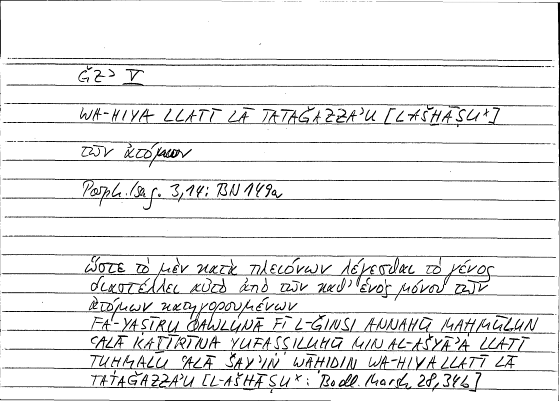 ǦZʾ V
WA-HIYA LLATĪ LĀ TATAǦAZZAʾU [L-AŠḪĀṢU*]
τῶν ἀτόμων
Porph. Isag. 3,14: BN 149a
ὥστε τὸ μὲν κατὰ πλειόνων λέγεσθαι τὸ γένος
διαστέλλει αὐτὸ ἀπὸ τῶν καθ' ἑνὸς μόνου τῶν
ἀτόμων κατηγορουμένων
FA-YAṢĪRU QAWLUNĀ FĪ L-ǦINSI ANNAHŪ MAḤMŪLUN
ʿALĀ KAṮĪRĪNA YUFAṢṢILUHŪ MIN AL-AŠYĀʾA LLATĪ
TUḤMALU ʿALĀ ŠAYʾIN WĀḤIDIN WA-HIYA LLATĪ LĀ
TATAǦAZZAʾU [L-AŠḪĀṢU*: Bodl. Marsh. 28, 34b]